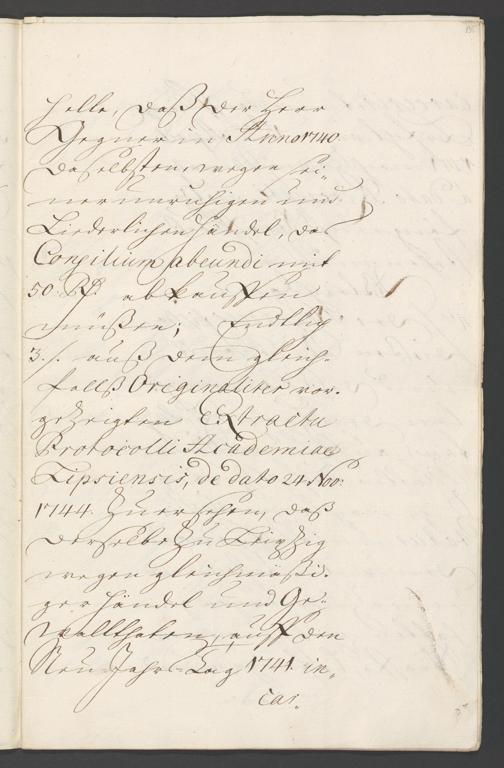 helle, daß der Herr
Gegner in Anno 1740.
daselbsten, wegen sei-
ner unruhigen und
Liederlichen Händel, das
Consilium abeundi mit
50. Rth. abkauffen
müßen; Endlich
3./. auß dem gleich-
falß Originaliter vor-
gezeigten Extractu
Protocolli Academiae
Lipsiensis, de dato 24. Nov:
1744. Zu ersehen, daß
derselbe Zu Leipzig
wegen gleichmäßi-
ger Händel und Ge-
waltthaten, auff den
Neu Jahrs Tag 1741. in-
car.